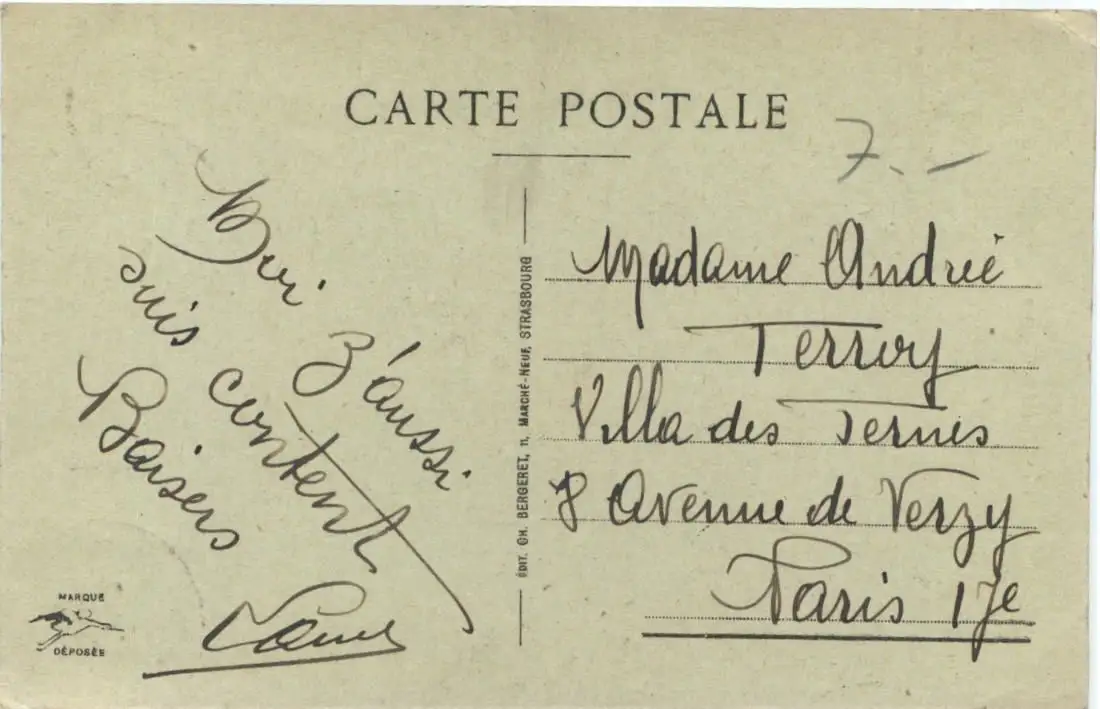 CARTE POSTALE
7.-
Moi
z'aussi
suis content
Baisers
ÉDIT. CH. BERGERET, 11, MARCHÉ-NEUF, STRASBOURG
Madame Andrée
Terroy
Villa des Ternes
8 Avenue de Verzy
Paris 17e
MARQUE
DÉPOSÉE